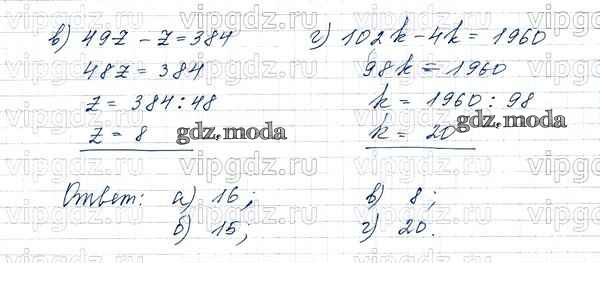 в) 49z - z = 384
48z = 384
z = 384 : 48
z = 8
г) 102k - 4k = 1960
98k = 1960
k = 1960 : 98
k = 20
gdz.moda
gdz.moda
Ответ: а) 16;
б) 15;
в) 8;
г) 20.
vipgdz.ru